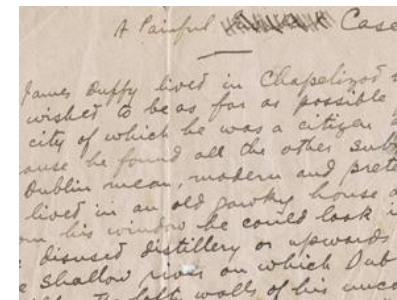 A Painful Case
James Duffy lived in Chapelizod
wished to be as far as possible
city of which he was a citizen
ause he found all the other sub
Dublin mean, modern and prete
lived in an old house
om his window he could look i
disused distillery or upwards
e shallow river on which Dub
the lofty walls of his unca